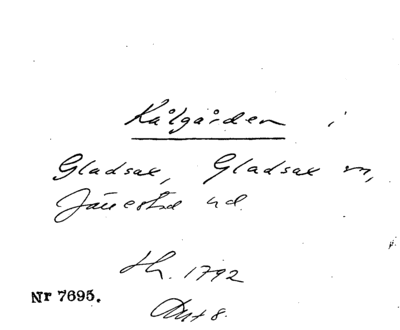 Kålgården i
Gladsax, Gladsax sn,
Järrestad hd.
th. 1792
Akt 8.
Nr 7695.